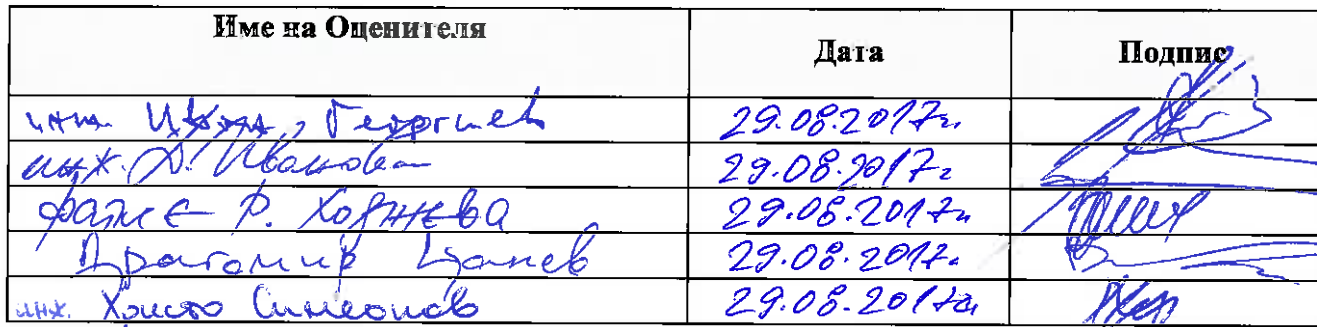 Име на Оценителя Дата Подпис
инж. Георгиев 29.08.2017г.
инж. Д. Иванова 29.08.2017г
фатме Р. Ходжева 29.08.2017г.
Драгомир Цанев 29.08.2017г.
инж. Христо Симеонов 29.08.2017г.